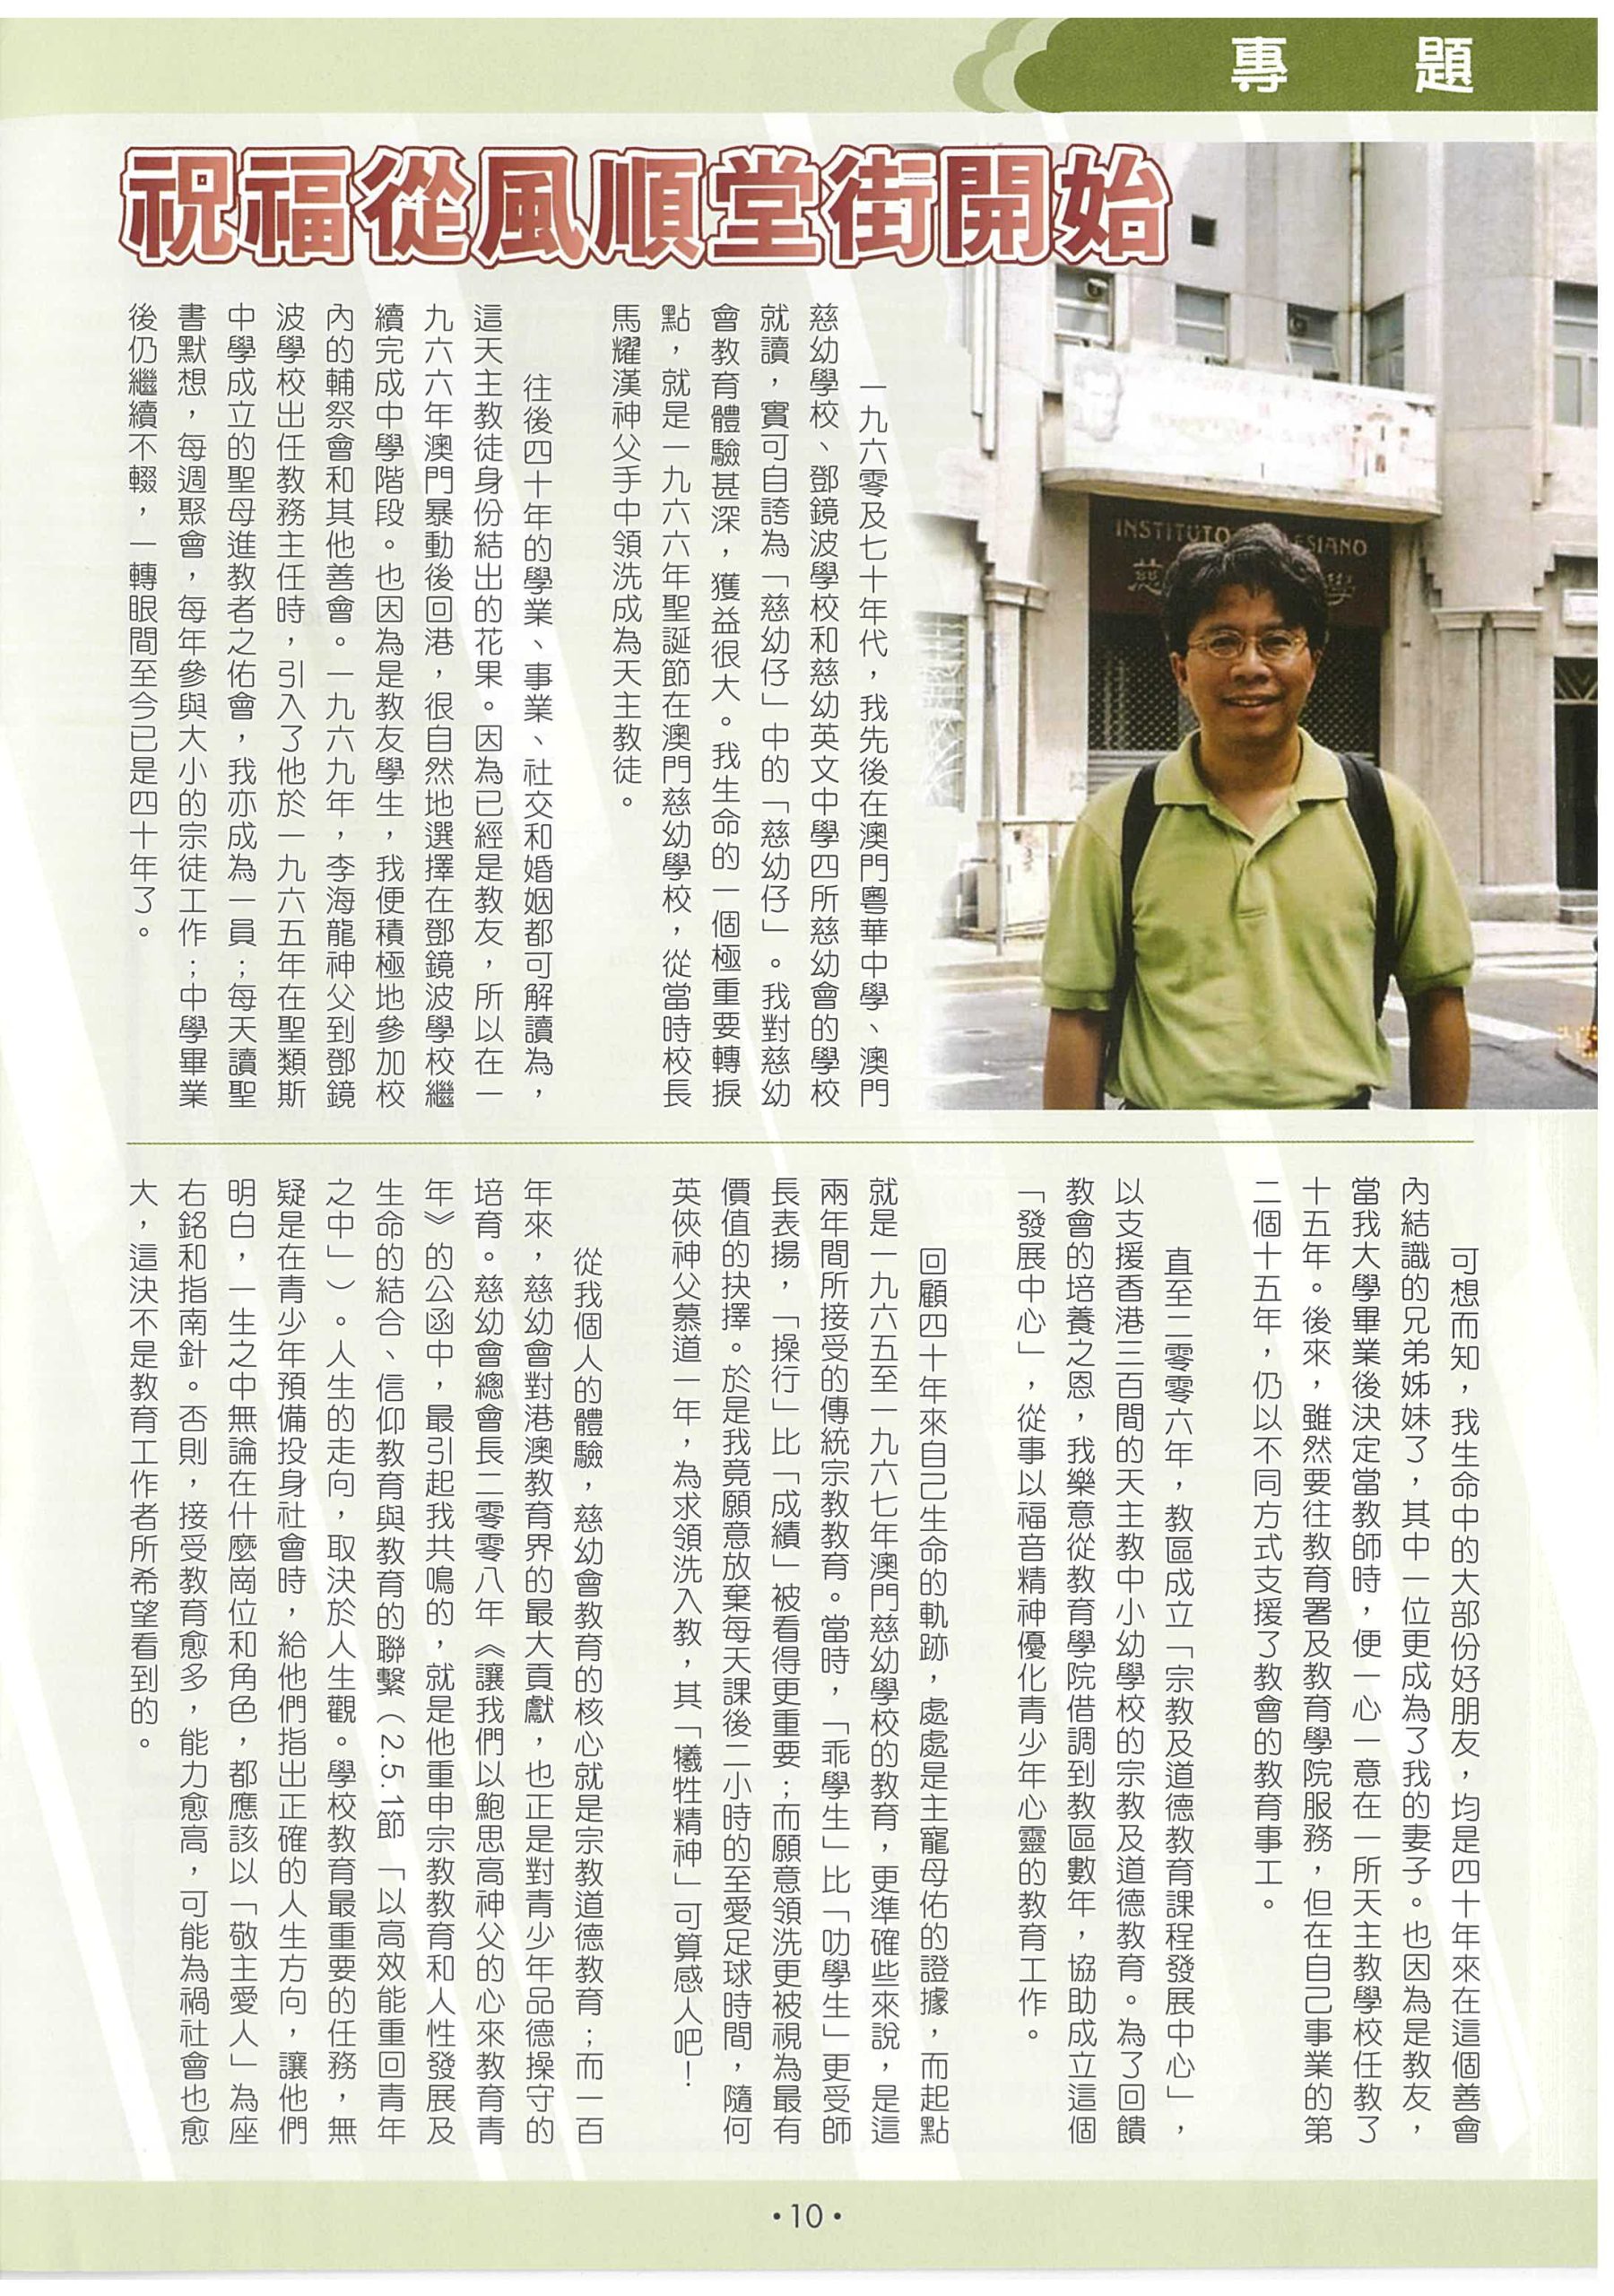 專題
祝福從風順堂街開始
INSTITUTO
ESIANO
慈
學
一九六零及七十年代，我先後在澳門粵華中學、澳門
慈幼學校、鄧鏡波學校和慈幼英文中學四所慈幼會的學校
就讀，實可自誇為「慈幼仔」中的「慈幼仔」。我對慈幼
會教育體驗甚深，獲益很大。我生命的一個極重要轉捩
點，就是一九六六年聖誕節在澳門慈幼學校，從當時校長
馬耀漢神父手中領洗成為天主教徒。
往後四十年的學業、事業、社交和婚姻都可解讀為，
這天主教徒身份結出的花果。因為已經是教友，所以在一
九六六年澳門暴動後回港，很自然地選擇在鄧鏡波學校繼
續完成中學階段。也因為是教友學生，我便積極地參加校
內的輔祭會和其他善會。一九六九年，李海龍神父到鄧鏡
波學校出任教務主任時，引入了他於一九六五年在聖類斯
中學成立的聖母進教者之佑會，我亦成為一員；每天讀聖
書默想，每週聚會，每年參與大小的宗徒工作；中學畢業
後仍繼續不輟，一轉眼間至今已是四十年了。
可想而知，我生命中的大部份好朋友，均是四十年來在這個善會
內結識的兄弟姊妹了，其中一位更成為了我的妻子。也因為是教友，
當我大學畢業後決定當教師時，便一心一意在一所天主教學校任教了
十五年。後來，雖然要往教育署及教育學院服務，但在自己事業的第
二個十五年，仍以不同方式支援了教會的教育事工。
直至二零零六年，教區成立「宗教及道德教育課程發展中心」，
以支援香港三百間的天主教中小幼學校的宗教及道德教育。為了回饋
教會的培養之恩，我樂意從教育學院借調到教區數年，協助成立這個
「發展中心」，從事以福音精神優化青少年心靈的教育工作。
回顧四十年來自己生命的軌跡，處處是主寵母佑的證據，而起點
就是一九六五至一九六七年澳門慈幼學校的教育，更準確些來說，是這
兩年間所接受的傳統宗教教育。當時，「乖學生」比「叻學生」更受師
長表揚，「操行」比「成績」被看得更重要；而願意領洗更被視為最有
價值的抉擇。於是我竟願意放棄每天課後二小時的至愛足球時間，隨何
英俠神父慕道一年，為求領洗入教，其「犧牲精神」可算感人吧！
從我個人的體驗，慈幼會教育的核心就是宗教道德教育；而一百
年來，慈幼會對港澳教育界的最大貢獻，也正是對青少年品德操守的
培育。慈幼會總會長二零零八年《讓我們以鮑思高神父的心來教育青
年》的公函中，最引起我共鳴的，就是他重申宗教教育和人性發展及
生命的結合、信仰教育與教育的聯繫（2.5.1節「以高效能重回青年
之中」）。人生的走向，取決於人生觀。學校教育最重要的任務，無
疑是在青少年預備投身社會時，給他們指出正確的人生方向，讓他們
明白，一生之中無論在什麼崗位和角色，都應該以「敬主愛人」為座
右銘和指南針。否則，接受教育愈多，能力愈高，可能為禍社會也愈
大，這決不是教育工作者所希望看到的。
·10·